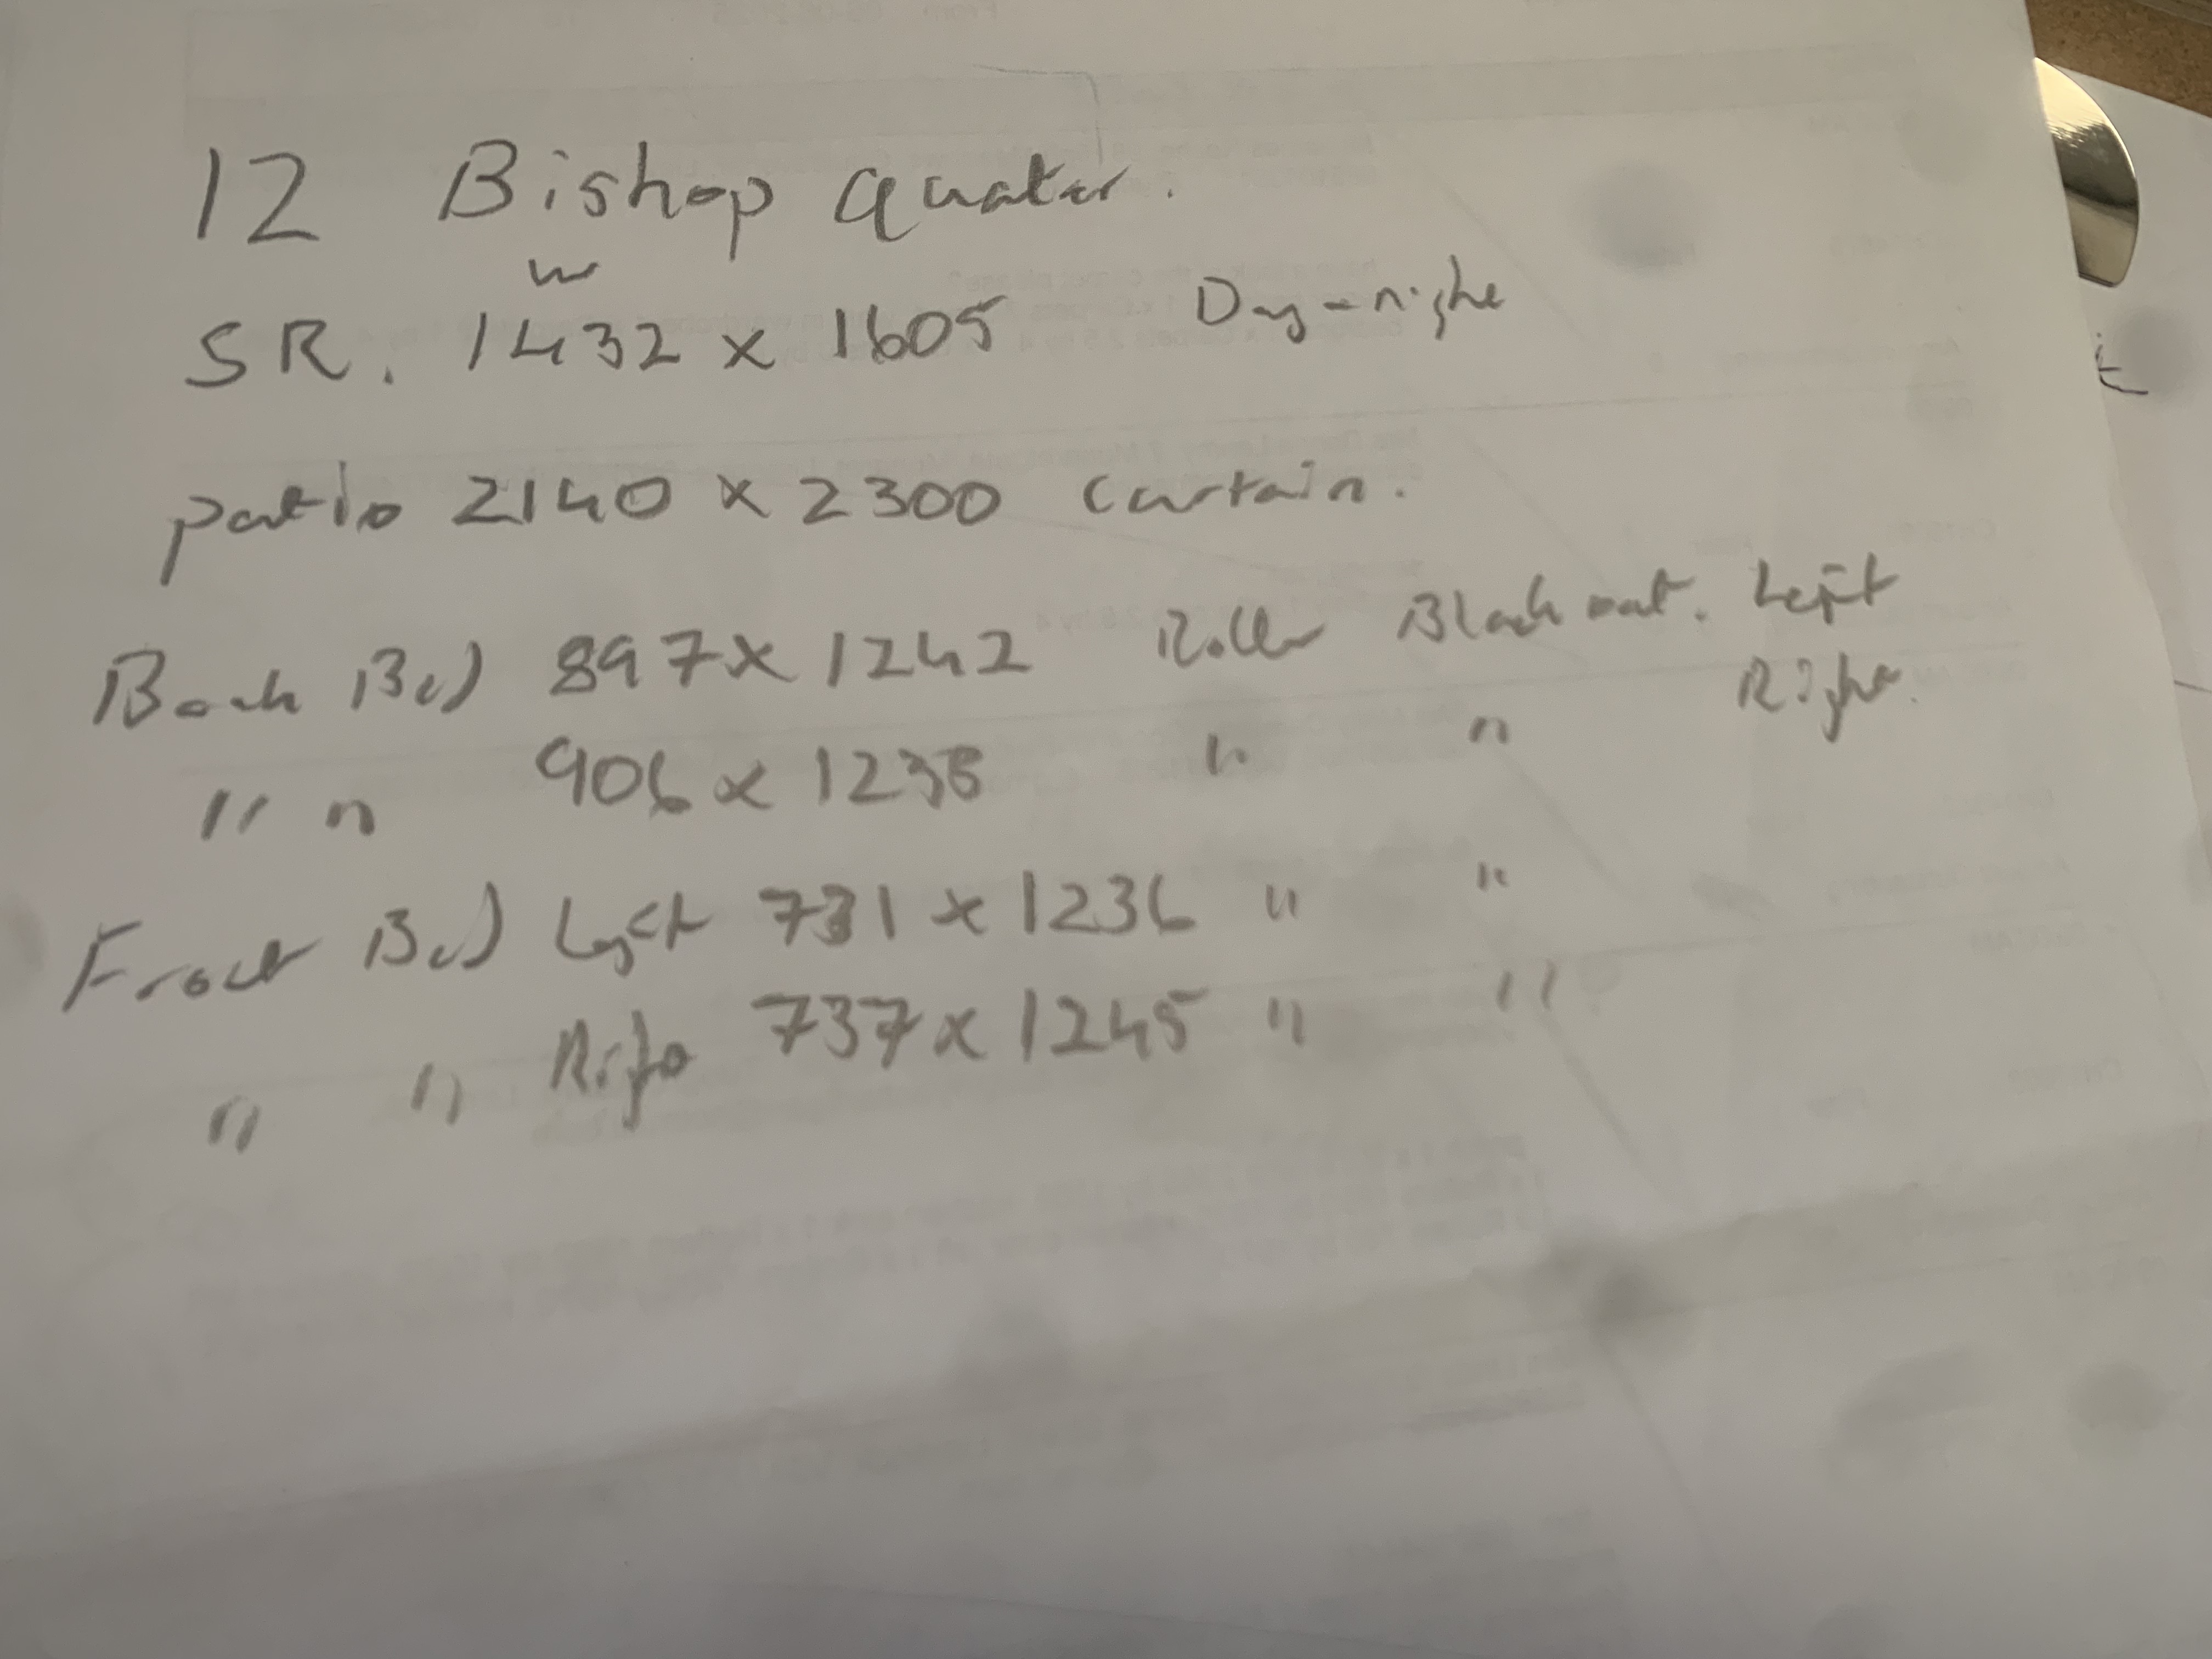 12 Bishop Quater.
w
SR. 1432 x 1605 Day-night
patio 2140 x 2300 curtain.
Back Bed 897 x 1242 Roller Blackout. Left
Right.
" " 906 x 1238 " "
Front Bed Left 731 x 1236 " "
" " Right 737 x 1245 " "